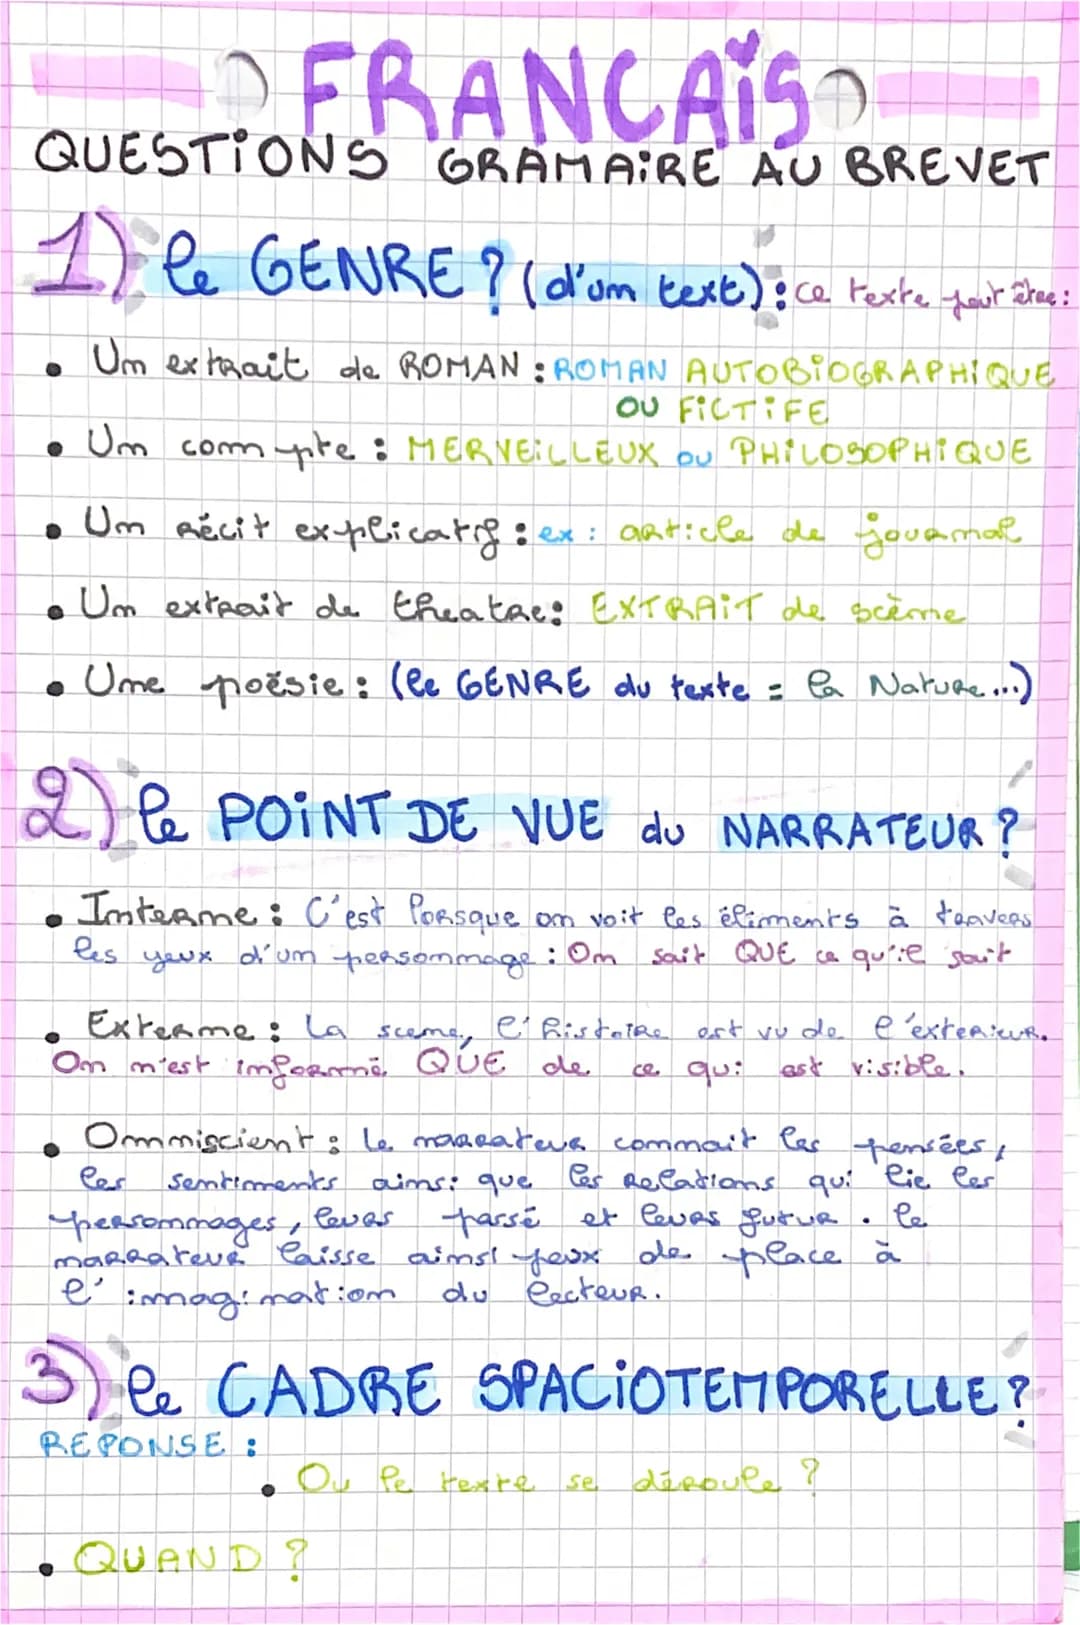 FRANCAÏS
QUESTIONS GRAMAIRE AU BREVET
1) le GENRE ? (d'un text) : ce texte peut être :
• Un extrait de ROMAN : ROMAN AUTOBIOGRAPHIQUE
OU FICTIFE
• Un compte : MERVEILLEUX ou PHILOSOPHIQUE
• Un récit explicatif : ex : article de journal
• Un extrait de theatre : EXTRAIT de scène
• Une poësie : (le GENRE du texte = la Nature...)
2) le POINT DE VUE du NARRATEUR ?
• Interne : C'est lorsque on voit les éliments à travers
les yeux d'un personnage : On sait QUE ce qu'il sait
• Externe : La scene, l'histoire est vu de l'exterieur.
On n'est informé QUE de ce qui est visible.
• Omniscient : le narrateur connait les pensées,
les sentiments ainsi que les relations qui lie les
personnages, leurs passé et leurs futur. le
narrateur laisse ainsi peux de place à
l'imagination du lecteur.
3) le CADRE SPACIOTEMPORELLE ?
REPONSE :
• Ou le texte se déroule ?
• QUAND ?